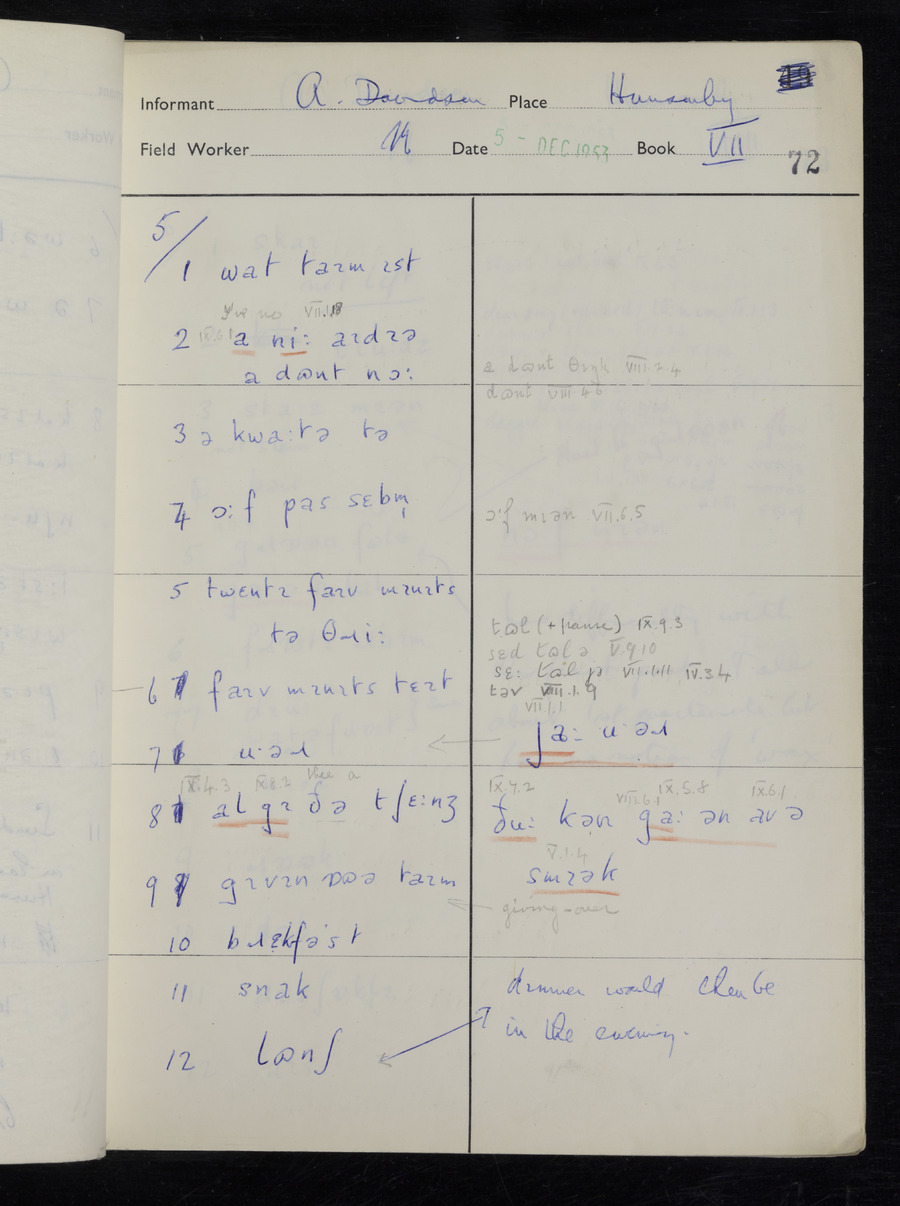 Informant A. Davidson Place Hunsonby
Field Worker Date 5 - DEC 1953 Book VII
72
5/
1 wat taɪm ɪst
I've no VII.1.18
2 IX.6.1 a ni: aɪdɪə
a dɷnt nɔ:
a dɷnt θɪŋk VIII.7.4
dɷnt VIII 4 6
3 ə kwa:tə tə
4 ɔ:f pas sɛbm̩
ɔ:f mɪən VII.6.5
5 twɛntɪ faɪv mɪnɪts
tə θɹi:
tɷl (+ pause) IX.9.3
sɛd tɷl ə V.9.10
sɛ: tɷl jə VII.1.11 IV.3.4
6 faɪv mɪnɪts tɛɪt
təv VIII.1.9
VII.1.1
7 u·əɹ
ja: u·əɹ
IX.4.3 IX.8.2 thee a
8 al gɪ ðə tʃɛ:nʒ
IX.4.2 VIII.6.1 IX.5.8 IX.6.1
ðu: kən ga: ən avə
V.1.4
smɪək
9 gɪvɪn ɒɷə taɪm
giving-over
10 bɹɛkfə·st
11 snak
dinner would then be
in the evening.
12 lɷnʃ